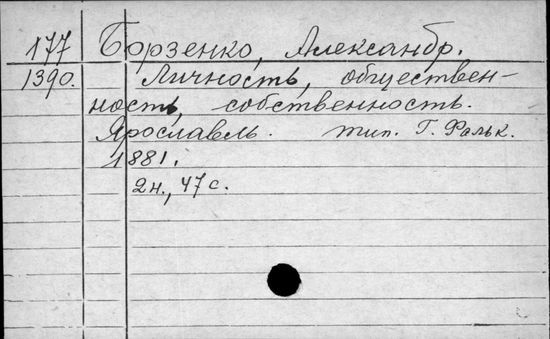 177 Борзенко, Александр.
1390. Личность, обществен-
ность, собственность.
Ярославль. тип. Г. Фальк.
1881.
2н., 47 с.